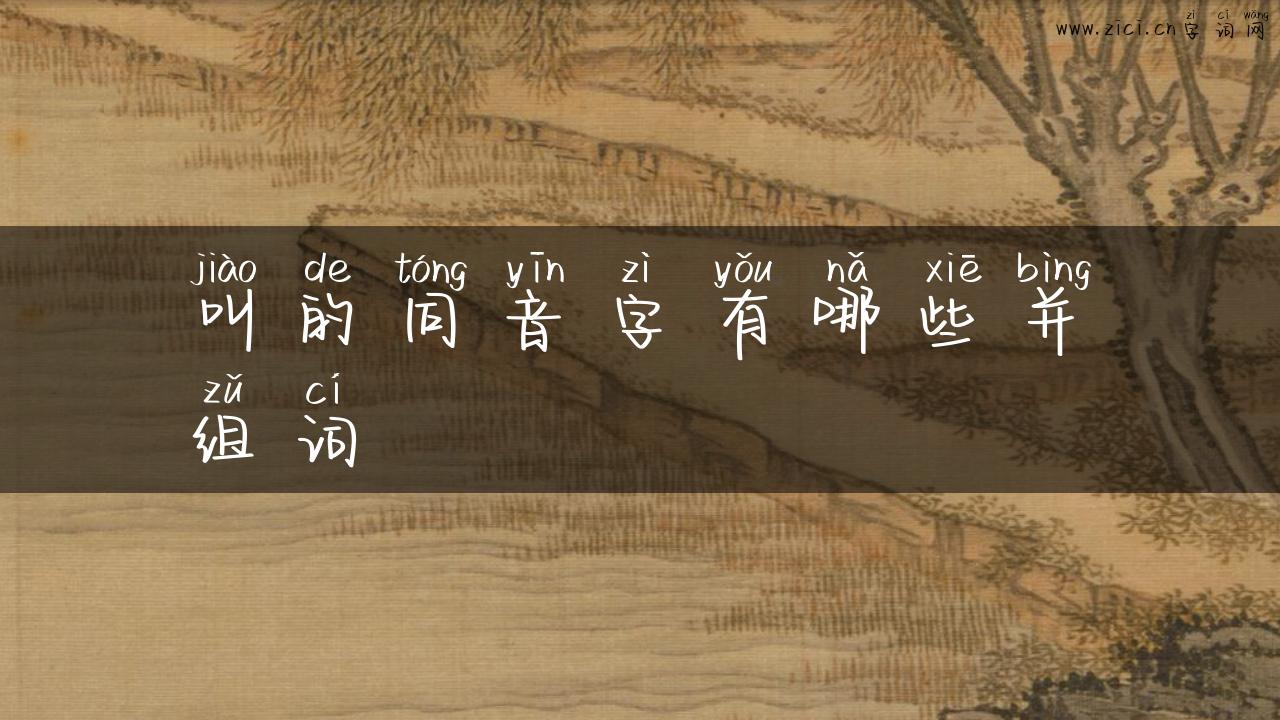 zì cí wǎng
www.zici.cn字词网
jiào de tóng yīn zì yǒu nǎ xiē bìng
叫的同音字有哪些并
zǔ cí
组词